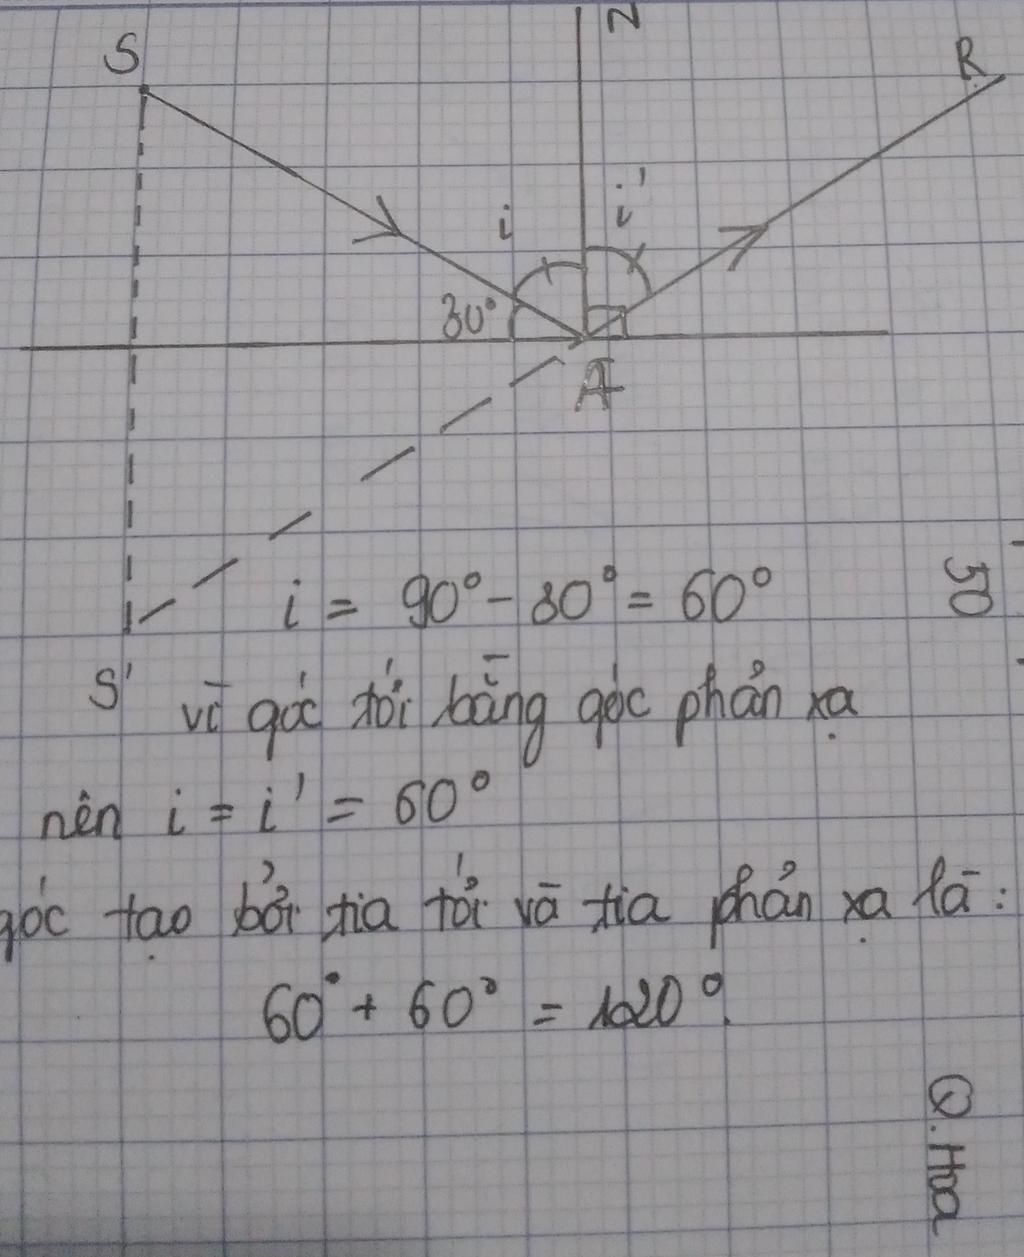 S
N
R
i
i'
30°
A
i = 90° - 30° = 60°
50
S'
vì góc tới bằng góc phản xạ
nên i = i' = 60°
góc tạo bởi tia tới và tia phản xạ là:
60° + 60° = 120°.
Q. Hoa